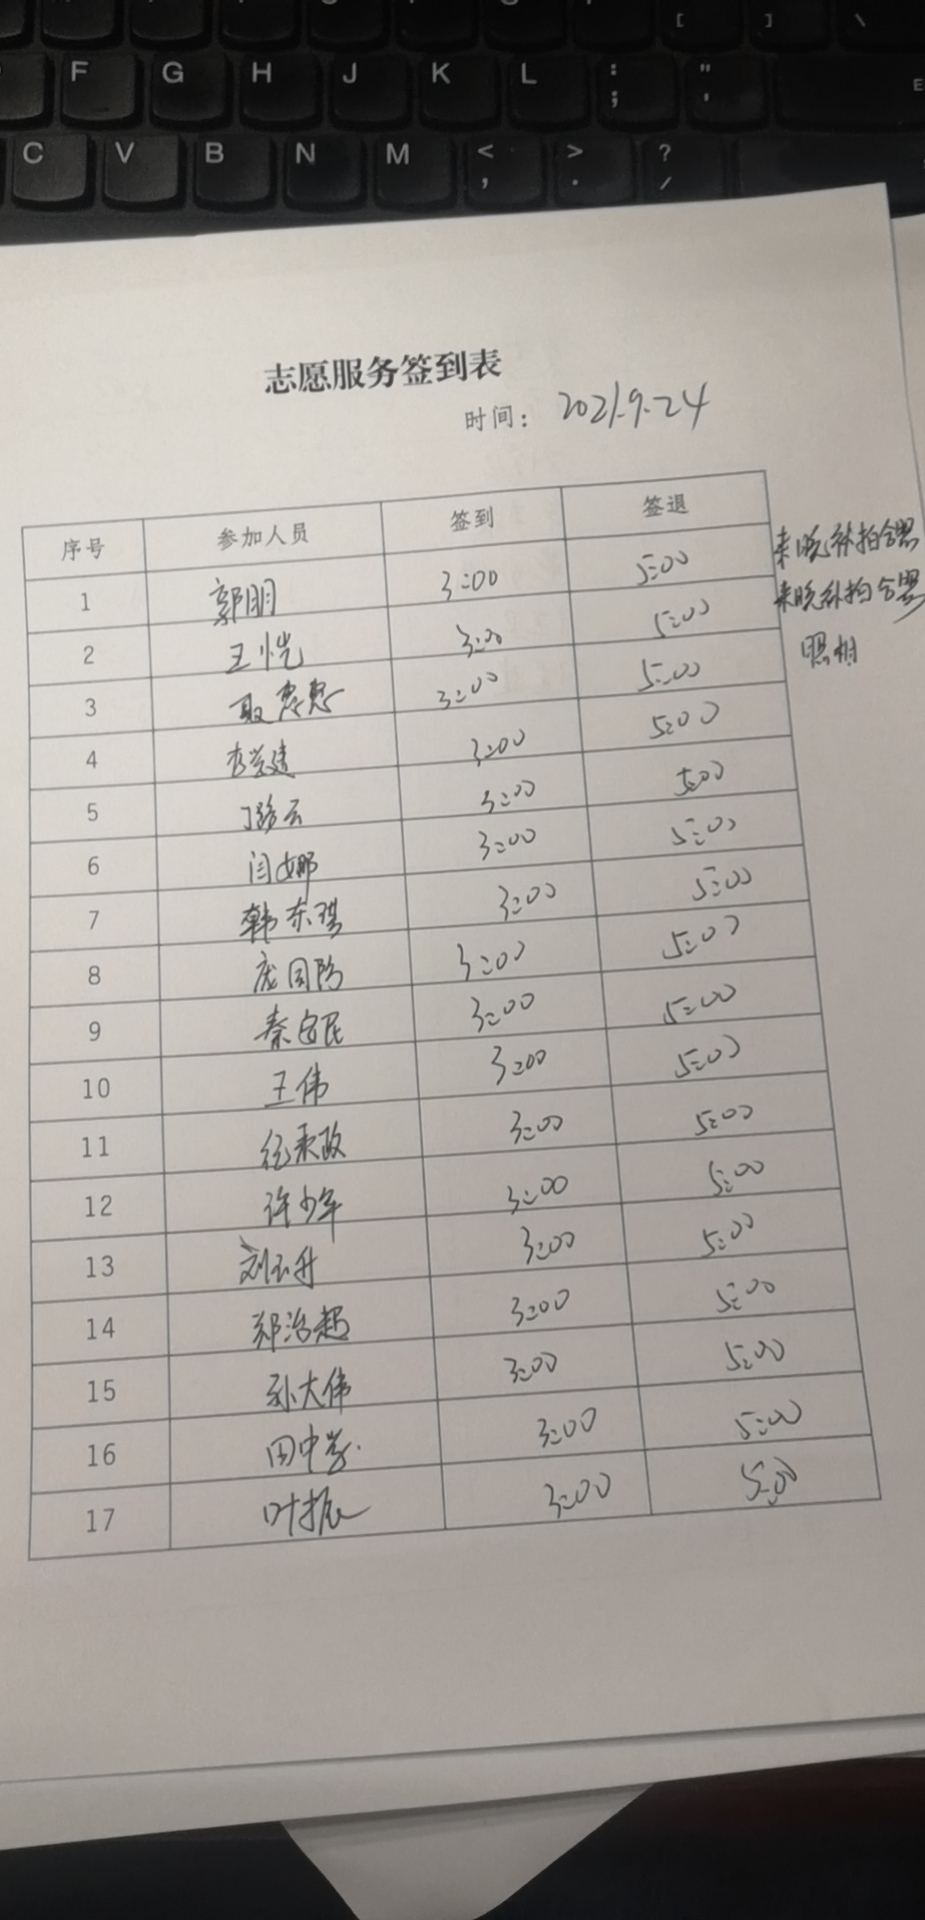 [ ] \
F G H J K L : ; " '
C V B N M < , > . ? /
志愿服务签到表
时间: 2021.9.24
序号 参加人员 签到 签退
1 郭朋 3:00 5:00 来晚补拍合影
2 王恺 3:00 5:00 来晚补拍合影
3 聂惠惠 3:00 5:00 照相
4 李学建 3:00 5:00
5 丁路云 3:00 5:00
6 闫娜 3:00 5:00
7 韩东琪 3:00 5:00
8 庞国防 3:00 5:00
9 秦安民 3:00 5:00
10 王伟 3:00 5:00
11 3:00 5:00
12 许少军 3:00 5:00
13 刘玉升 3:00 5:00
14 郑治超 3:00 5:00
15 孙大伟 3:00 5:00
16 田中学 3:00 5:00
17 叶振 3:00 5:00